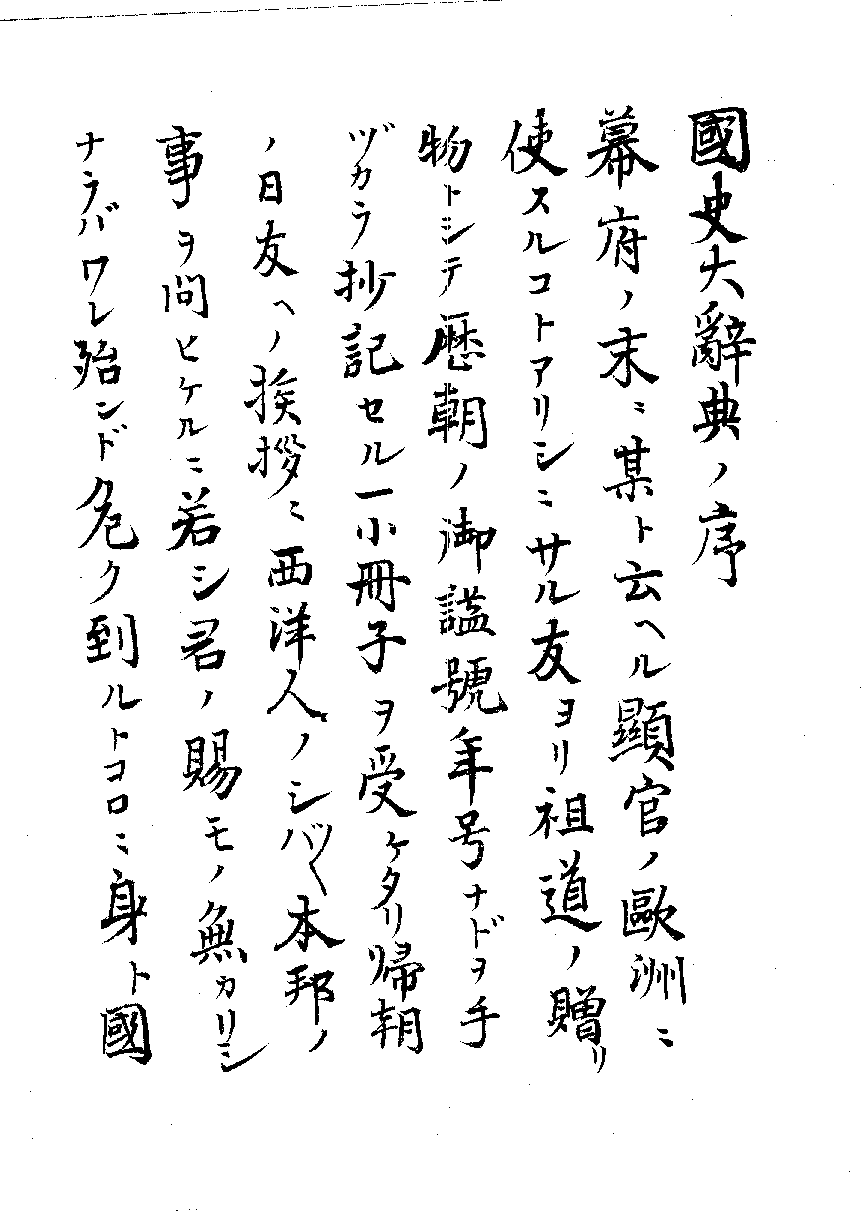 國史大辭典ノ序
幕府ノ末ニ某ト云ヘル顯官ノ歐洲ニ
使スルコトアリシニサル友ヨリ祖道ノ贈リ
物トシテ歴朝ノ御謚號年号ナドヲ手
ヅカラ抄記セル一小冊子ヲ受ケタリ帰朝
ノ日友ヘノ挨拶ニ西洋人ノシバ〱本邦ノ
事ヲ問ヒケルニ若シ君ノ賜モノ無カリシ
ナラバワレ殆ンド危ク到ルトコロニ身ト國